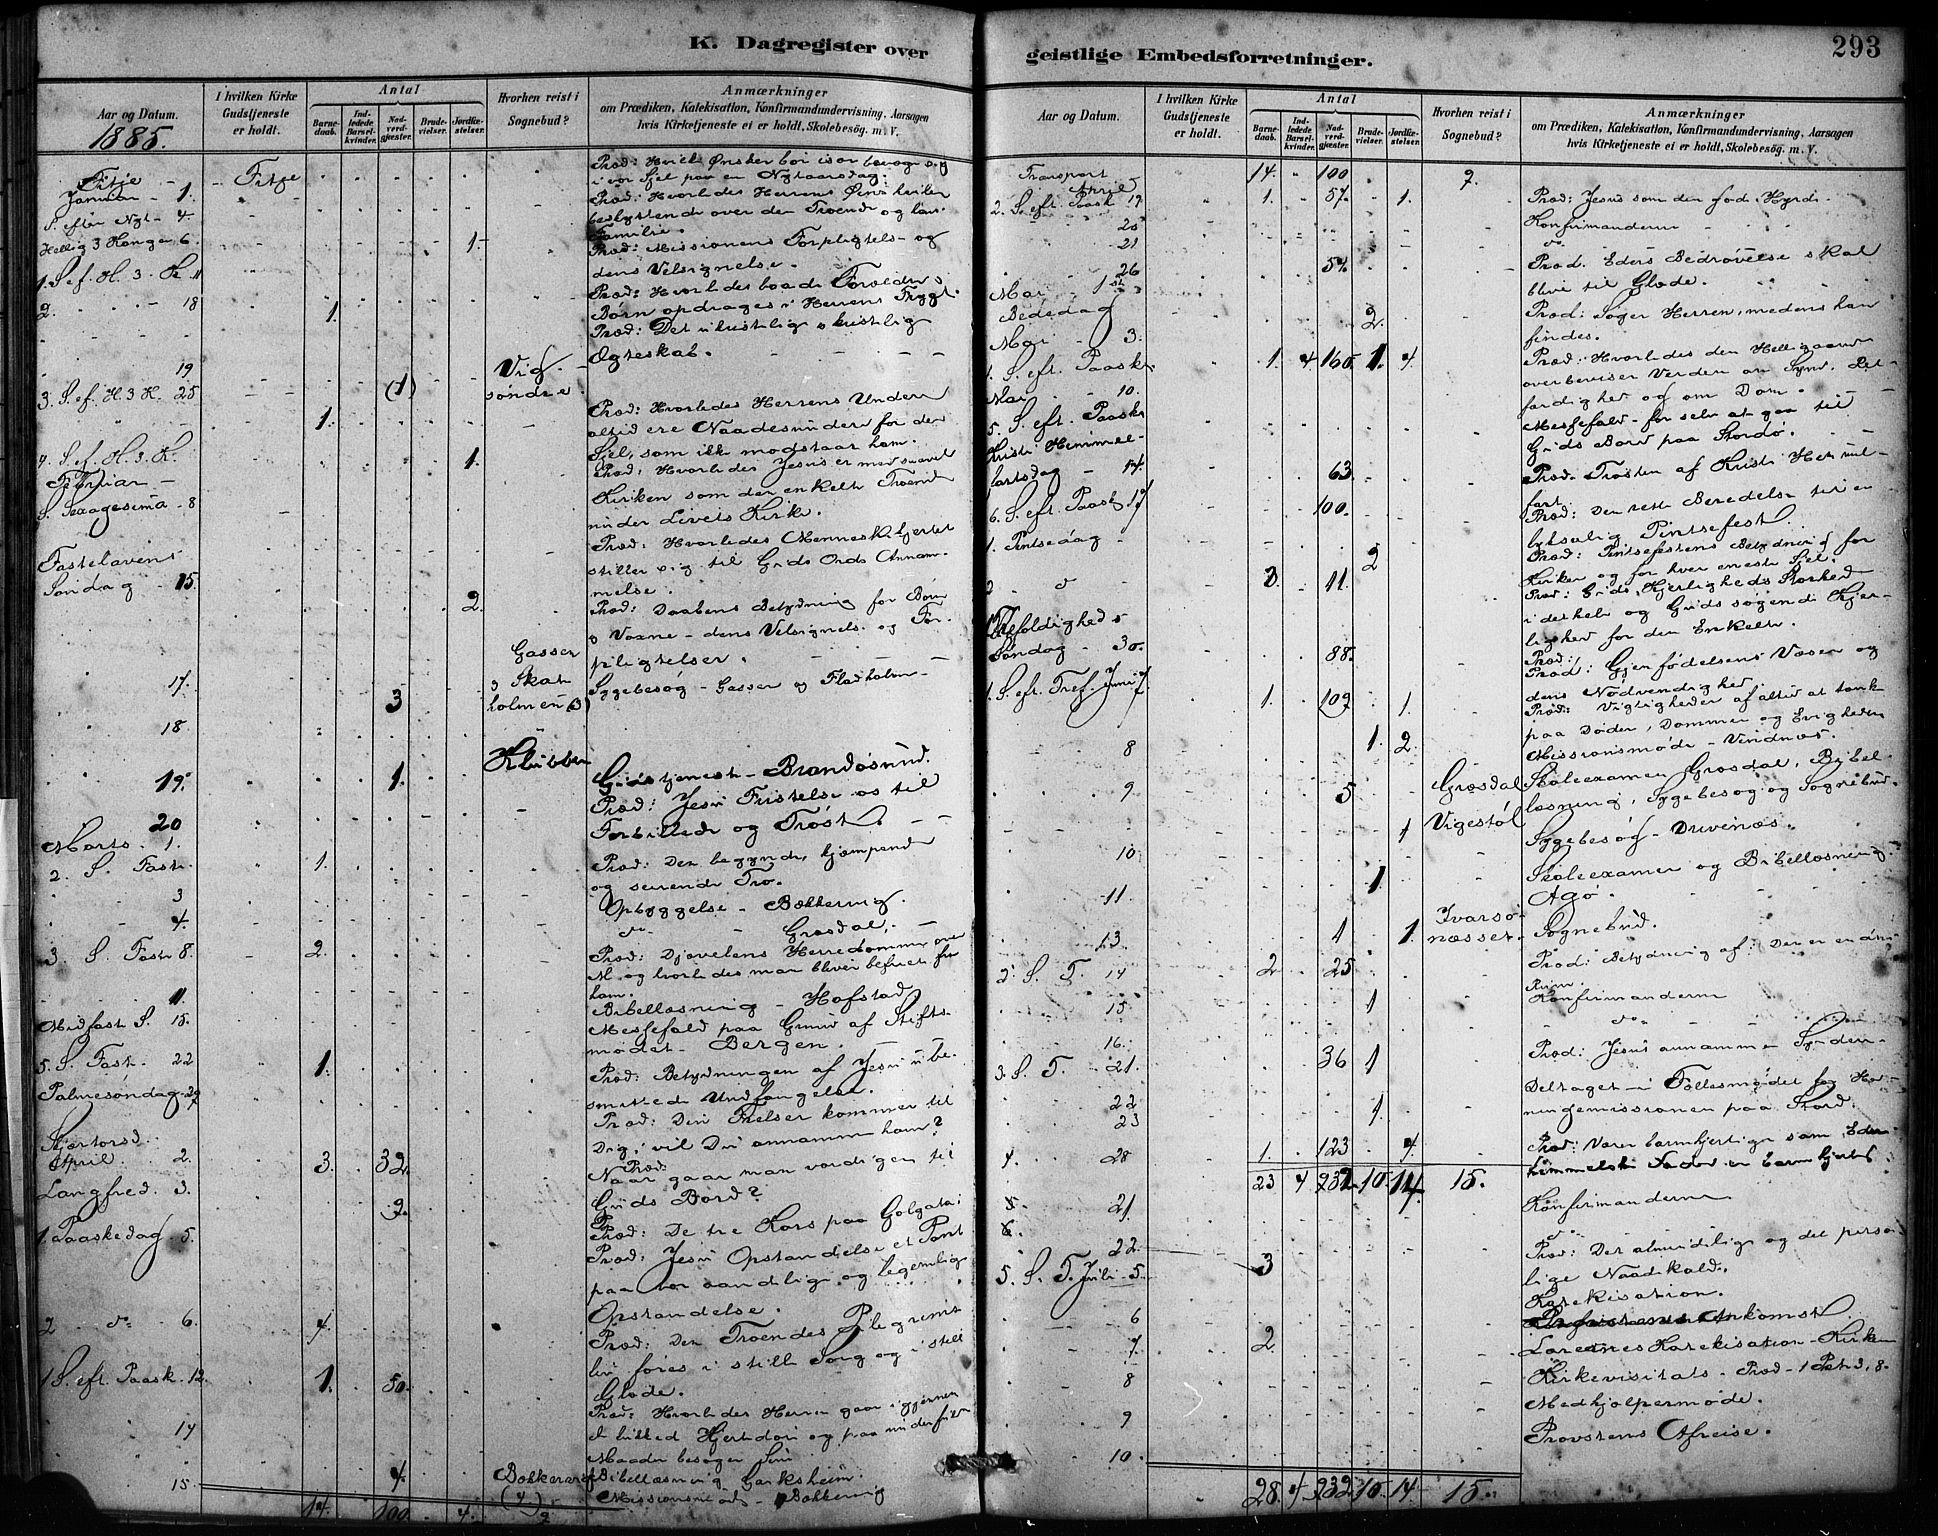 K. Dagregister over
geistlige Embedsforretninger.
293
Aar og Datum.
1885.
I hvilken Kirke Gudstjeneste er holdt.
Antal
Barnedaab.
Indledede Barselkvinder.
Nadverdgjester.
Brudevielser.
Jordfæstelser.
Hvorhen reist i Sognebud?
Anmærkninger
om Prædiken, Katekisation, Konfirmandundervisning, Aarsagen
hvis Kirketjeneste ei er holdt, Skolebesøg. m. V.
Fitje - Fitje
Januar - 1. Præd:
i vor Sjel paa en Nytaarsdag.
S. efter Nyt - 4. Præd: Hvorledes Herrens Øine hviler
beskyttende over den Troende og hans
Familie.
Hellig 3 Konge 6. 1. Præd: Missionens Forpligtelse og
dens Velsignelse.
1. S. ef. H. 3. K. 11
Børn opdrages i Herrens Frygt.
2. 18 1. Præd: Det ukristelige o kristelig
Egteskab.
19 (1) Vig
søndre
3. S. ef. H. 3 K. 25 1. Præd: Hvorledes Herrens Undere
altid ere Naadesundere for den
Sjel, som ikke modstaar ham.
4. S. ef. H. 3. K. 1. Præd: Hvorledes Jesus er med saavel
Februar -
Kirken som den enkelte Troende
under Livets
S. Sexagesima - 8 Præd: Hvorledes Menneskehjertet
stiller sig til Guds Ords Annam-
melse.
Fastelavens
Søndag - 15. 2. Præd: Daabens Betydning for Børn
o Voxne - dens Velsignelse og For-
pligtelser.
17. 3 Gasser
o Skat
holmen (3) Sygebesøg - Gasser og
18
19. 1. Klubben Gudstjeneste - Brandøsund.
20
Præd: Jesu Fristelse os til
Forbillede og Trøst.
Marts. 1.
2. S. Faste 1. Præd: Den begynde, kjæmpende
og seirende Tro.
3 Opbyggelse - Bækkering.
4. do - Grøsdal.
3. S. Faste 8. 2. Præd: Djævelens Herredømme over
M. og hvorledes man bliver befriet fra
ham.
11. Bibellæsning - Hofstad
Midfast S. 15. Messefald paa Grund af Stifts-
mødet - Bergen.
5. S. Fast - 22 1. Præd: Betydningen af Jesu ube-
smittede Undfangelse.
Palmesøndag 29 Præd: Din Frelser kommer til
Dig; vil Du annamme ham?
Skjærtorsd.
April 2. 3. 32. Præd:
Naar gaar man værdigen til
Guds Bord?
Langfred. 3. 2. Præd: De tre Kors paa Golgata:
1. Paaskedag 5. Præd: Jesu Opstandelse et Pant
paa vor aandelige og legemlige
Opstandelse.
2 do 6. 4. Præd: Den Troendes Pilegrims-
liv føres i stille Sorg og i stille
Glæde.
1 S. eft. Paask. 12. 1. 50. Præd: Hvorledes Herren gaar igjennem
den lukkede Hjertedør og paa
Maader besøger Sine
14 Bibellæsning
15. 4. (4) Missionsmøde - Bækkering
14. 100 4. 9
Aar og Datum.
I hvilken Kirke Gudstjeneste er holdt.
Antal
Barnedaab.
Indledede Barselkvinder.
Nadverdgjester.
Brudevielser.
Jordfæstelser.
Hvorhen reist i Sognebud?
Anmærkninger
om Prædiken, Katekisation, Konfirmandundervisning, Aarsagen
hvis Kirketjeneste ei er holdt, Skolebesøg. m. V.
Transport 14. 100
April
2. S. eft. Paask 19. 1. 57. 1. Præd: Jesus som den gode Hyrde.
20 Konfirmanderne
21 do.
26 54. Præd. Eders Bedrøvelse skal
blive til Glæde.
Mai - 1ste
Bededag 2. Præd: Søger Herren, medens han
findes.
Mai - 3.
S. eft. Paaske 1. 4 160. 1. 4. Præd: Hvorledes den Helligaand
overbeviser Verden om Synd, Ret-
færdighed og om Dom.
Mai 10.
5. S. eft. Paaske Messefald - for selv at gaa til
Guds Bord paa Stordø.
Kristi Himmel-
fartsdag - 14. 63. Præd. Trøsten af Kristi Himmel-
fart.
6. S. eft. Paask 17 100. Præd: Den rette Beredelse til en
lyksalig Pintsefest.
1. Pintsedag 2 Præd: Pintsefestens Betydning for
Kirken og for hver eneste Sjel.
2 do 3 11. Præd: Guds Kjerligheds Storhed
i det hele og Guds søgende Kjer-
lighed for den Enkelte.
Trefoldigheds
Søndag - 30. 88. Præd: Gjenfødelsens Væsen og
dens Nødvendighed.
1. S. eft. Tref. Juni 7 1. 109 1. Præd: Vigtigheden af altid at tænke
paa Døden, Dommen og Evigheden
8 1. 2. Missionsmøde - Vindnæs.
9 5 Grøsdal
Vigestøl Skoleexamen Grøsdal, Bibel-
læsning, Sygebesøg og Sognebud.
10 1 Sygebesøg - Drivenæs.
11. 1. Skoleexamen og Bibellæsning
Agø.
13 1 1. Ivarsø
næsset. Sognebud.
2. S. T. 14 2 25 Præd: Betydning af: Der er endnu
Rum.
15. 1 Konfirmanderne
16. do.
3. S. T. 21. 36 1 Præd: Jesus annammer Syndere.
22 1. Deltaget i Fællesmødet for Hed-
ningemissionen paa Stord.
23
4. 28 1. 123 4. Præd: Værer barmhjertige som Eders
himmelske Fader er barmhjertig
23 4 932 10. 14 15.
5. 21 Konfirmanderne
6. 22 do.
5. S. T. Juli - 5. 3 Præd: Det almindelige og det person-
lige Naadekald.
6 Katekisation.
7. 2. Katekisation - Kirken
8 Kirkevisitats - Præd - 1 Pet 3, 8.
9 Medhjælpermøde.
10. Provstens Afreise.
28. 4 932 10 14 15.